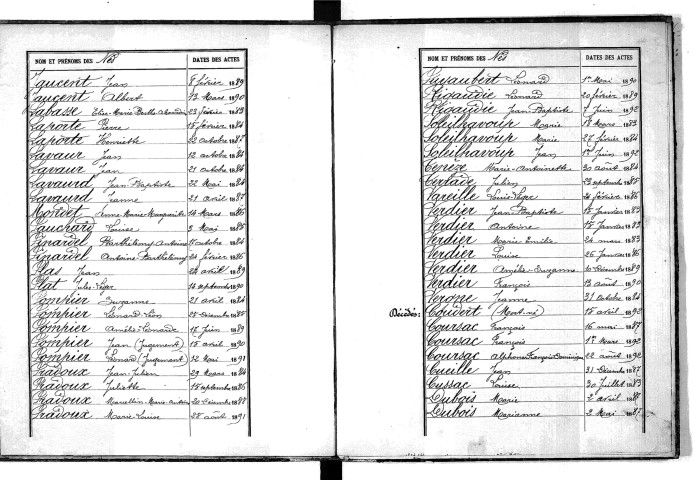 NOM ET PRÉNOMS DES Nés DATES DES ACTES
Jaucent Jean 8 février 1889
Jaucent Albert 13 Mars 1890
Labasse Elise-Marie-Berthe 23 février 1883
Laporte Pierre 18 février 1884
Laporte Henriette 22 octobre 1887
Lavaur Jean 12 octobre 1884
Lavaur Jean 21 octobre 1886
Lavaurd Jean Baptiste 22 Mai 1884
Lavaurd Jeanne 21 avril 1887
Mondet Anne-Marie-Marguerite 14 Mars 1886
Jeanne Louise 3 Mai 1885
Pinardel Barthélemy-Antoine 17 octobre 1884
Pinardel Antoine-Barthélemy 24 février 1886
Plas Jean 24 avril 1889
Plat Jules-Léger 14 septembre 1890
Pompier Suzanne 21 avril 1884
Pompier Léonard-Léon 25 décembre 1885
Pompier Amélie-Léonarde 17 Juin 1889
Pompier Jean (Jugement) 15 avril 1890
Pompier Léonard (Jugement) 22 Mai 1891
Pradoux Jean-Julien 29 Mars 1884
Pradoux Juliette 15 septembre 1886
Pradoux Marcellin-Marie-Antoine 20 Décembre 1888
Pradoux Marie-Louise 28 août 1891
NOM ET PRÉNOMS DES Nés DATES DES ACTES
Léonard 1er Mai 1890
Rigaudie Léonard 20 février 1889
Rigaudie Jean Baptiste 7 Juin 1892
Soleilhavoup Marie 18 Mars 1883
Soleilhavoup Marie 27 février 1884
Soleilhavoup Jean 1er Juin 1892
Marie-Antoinette 30 août 1884
Julien 23 septembre 1885
Vareille Louis-Léger 24 février 1886
Verdier Jean Baptiste 15 Janvier 1883
Verdier Antoine 15 Janvier 1883
Verdier Marie Emilie 24 mars 1883
Verdier Louise 26 Janvier 1886
Verdier Amélie-Suzanne 10 Décembre 1889
Verdier François 13 août 1890
Jeanne 31 octobre 1884
Décédés: Coudert (Mort-né) 15 avril 1892
Coursac François 16 mai 1887
Coursac François 1er Mars 1892
Coursac Alphonse François Dominique 22 août 1892
Cueille Jean 31 Décembre 1887
Cussac Louise 30 Juillet 1883
Dubois Marie 2 avril 1886
Dubois Marianne 2 Mai 1887